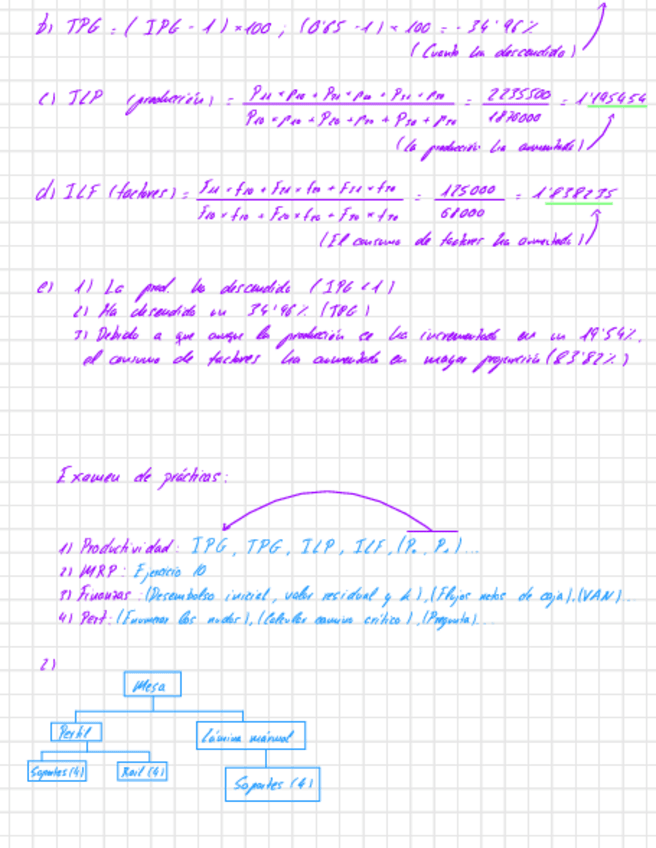 b) TPG = (IPG - 1) × 100 ; (0'65 - 1) × 100 = - 34'96%
(Cuanto ha descendido)
c) ILP (producción) = = 2235500 / 1870000 = 1'195454
(La producción ha aumentado)
d) ILF (factores) = = 125000 / 68000 = 1'838235
(El consumo de factores ha aumentado)
e) 1) La prod ha descendido (IPG < 1)
2) Ha descendido un 34'96% (TPG)
3) Debido a que aunque la producción se ha incrementado en un 19'54%,
el consumo de factores ha aumentado en mayor proporción (83'82%)
Examen de prácticas:
1) Productividad: IPG, TPG, ILP, ILF, (P₀, P₁)...
2) MRP: Ejercicio 10
3) Finanzas: (Desembolso inicial, valor residual y k), (Flujos netos de caja), (VAN)...
4) Pert: (Enumerar los nudos), (Calcular camino crítico), (Pregunta)...
2)
Mesa
Perfil Lámina mármol
Soportes (4) Rail (4) Soportes (4)